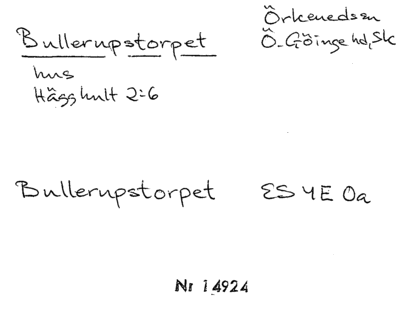 Bullerupstorpet
Örkeneds sn
Ö. Göinge hd, Sk
hus
Hägghult 2:6
Bullerupstorpet ES 4E 0a
Nr 14924